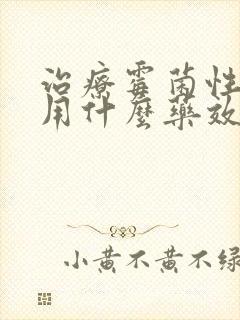 治療霉菌性
用什麼藥效
小黃不黃不綠